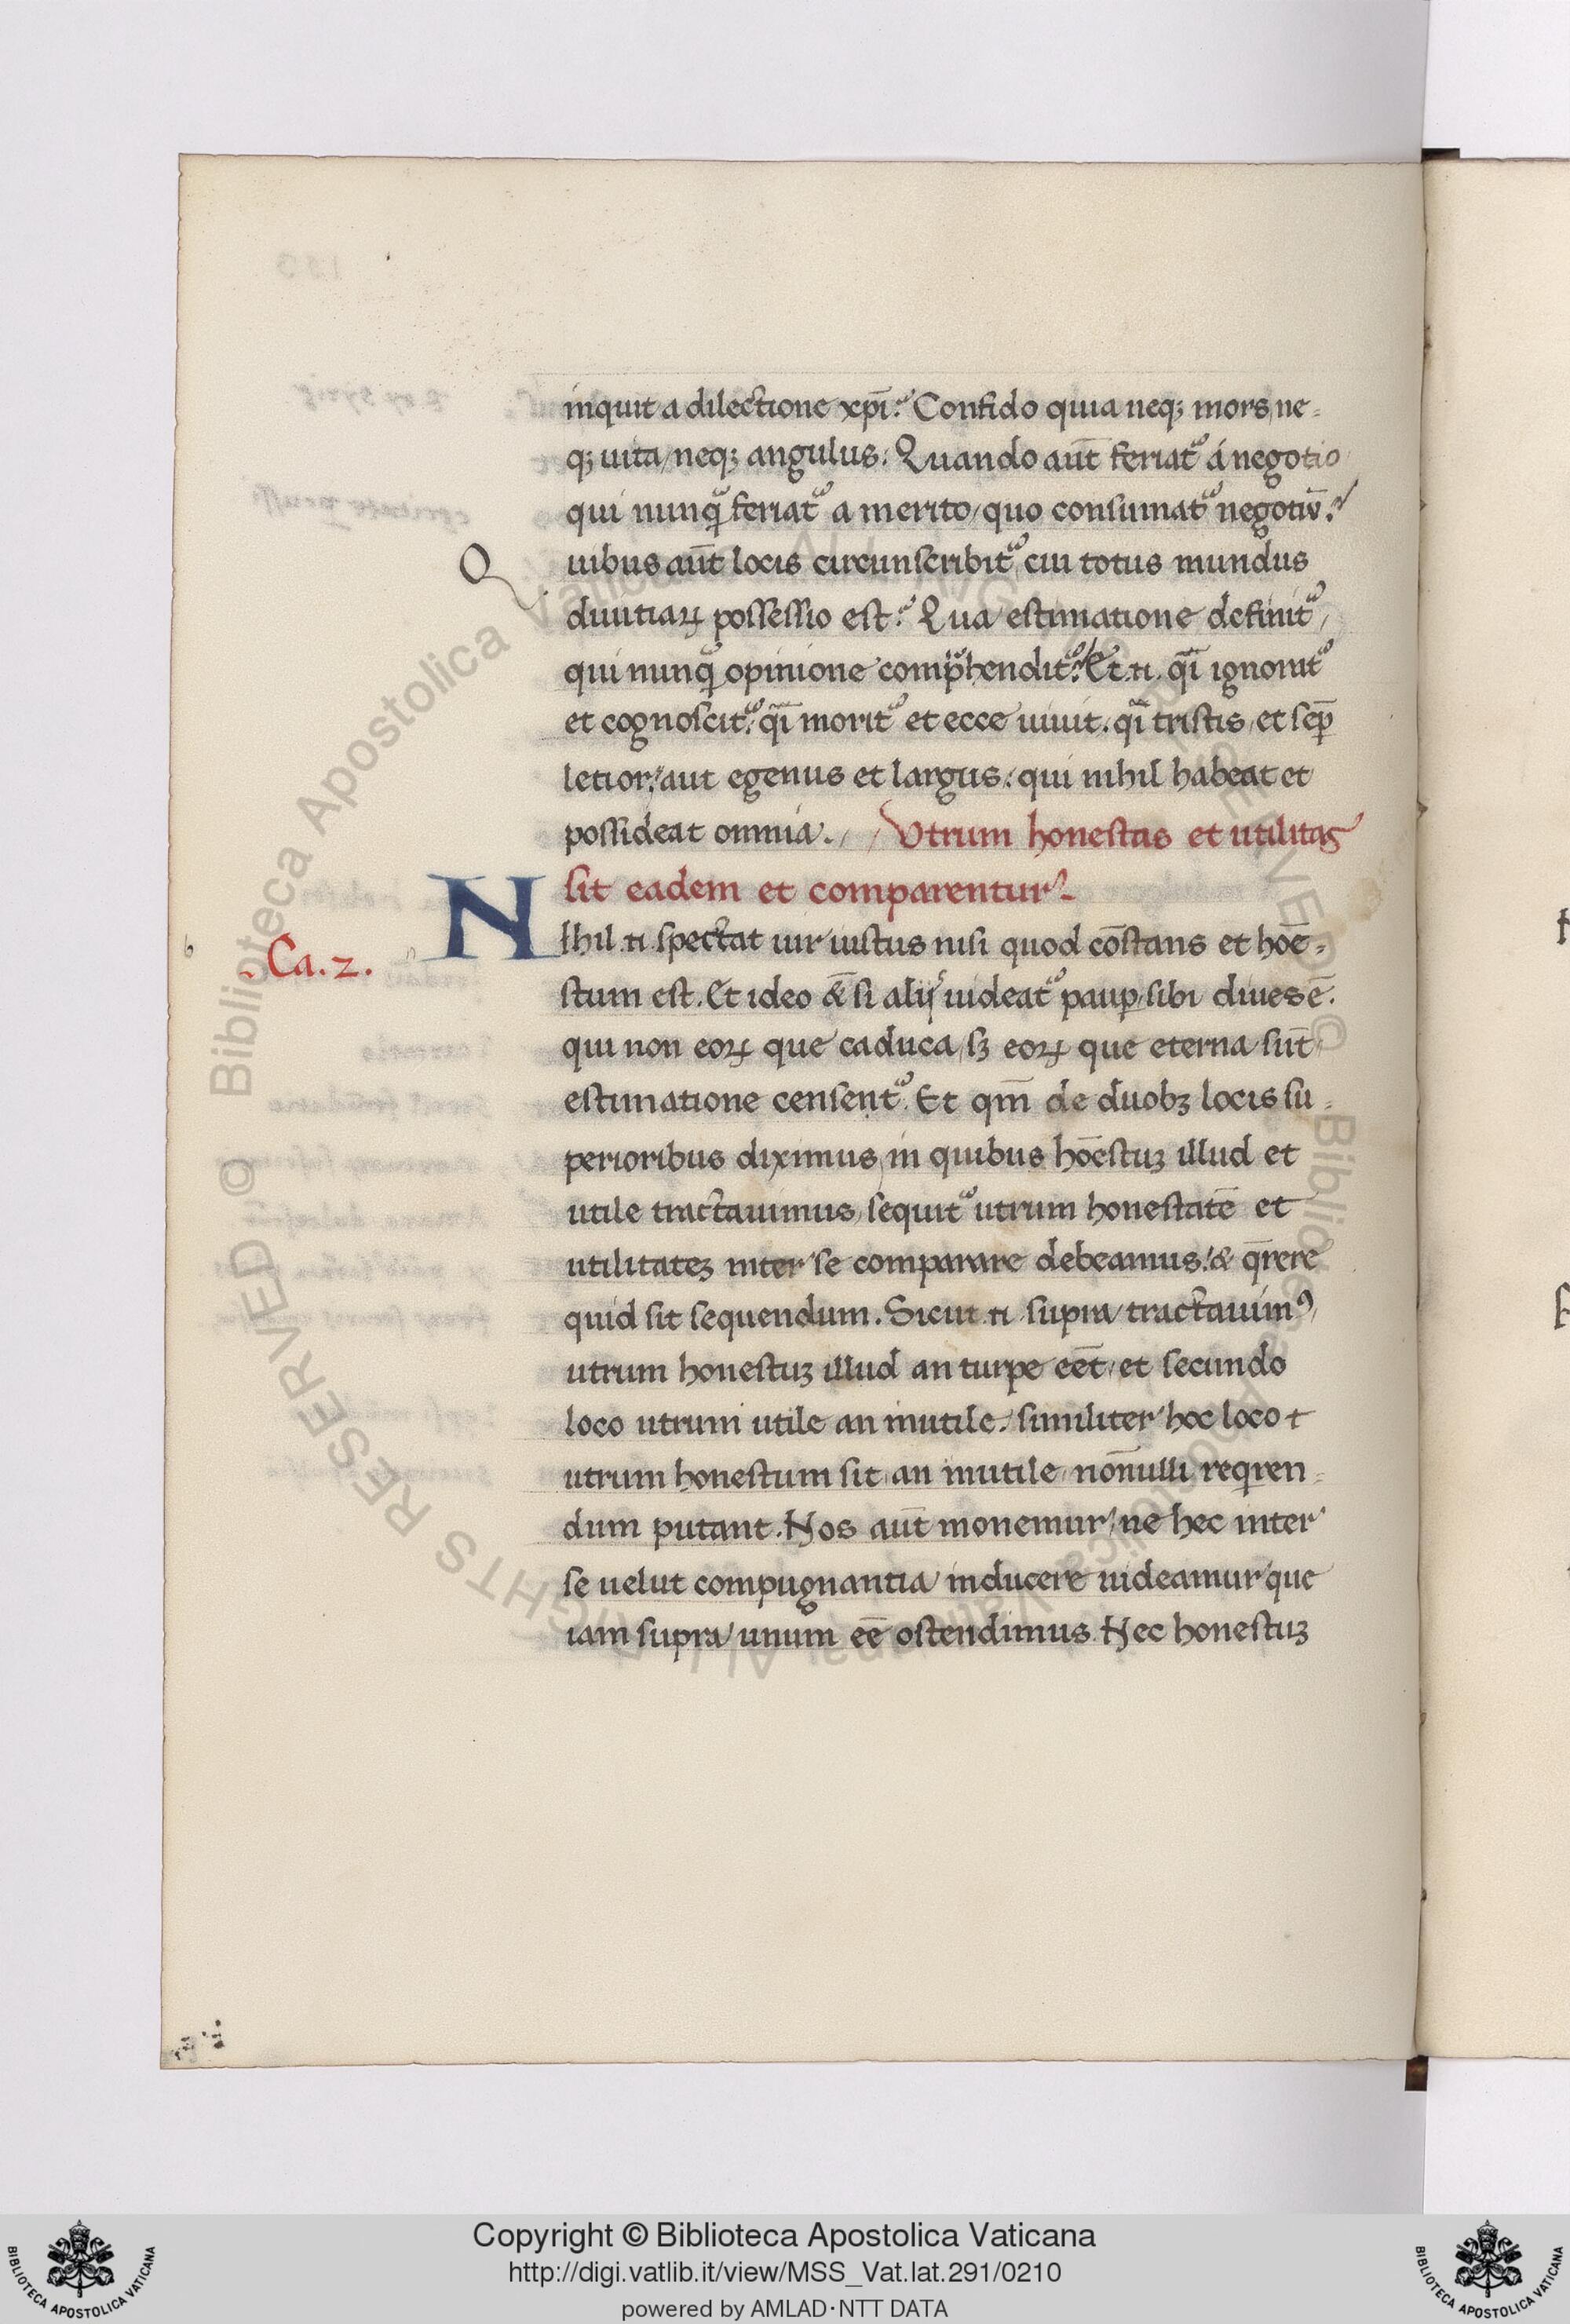 inquit a dilectione xp̄i? Confido quia neq; mors, ne-
q; uita, neq; angulus. Quando aūt feriat᷑ á negotio
qui nunq̄ feriat᷑ a merito, quo consumat᷑ negotiū?
Quibus aūt locis circunscribit᷑, cui totus mundus
diuitiaꝝ possessio est? Qua estimatione definit᷑,
qui nunq̄ opinione comp̄hendit᷑? Et.n. q̄i ignorat᷑
et cognoscit᷑: q̄i morit᷑ et ecce uiuit. q̄i tristis, et semꝑ
letior: aut egenus et largus: qui nihil habeat et
possideat omnia. Vtrum honestas et utilitas
sit eadem et comparentur.
Ca.2.
Nihil.n. spectat uir iustus nisi quod cōstans et hōe-
stum est. Et ideo & si alijs uideat᷑ pauꝑ, sibi diues ē.
qui non eoꝝ que caduca, sꝫ eoꝝ que eterna sūt
estimatione censent᷑. Et qm̄ de duobꝫ locis su-
perioribus diximus, in quibus hōestuꝫ illud et
utile tractauimus, sequit᷑ utrum honestatē et
utilitateꝫ inter se comparare debeamus: & q̄rere
quid sit sequendum. Sicut.n. supra tractauimꝰ,
utrum honestuꝫ illud an turpe eēt, et secundo
loco utrum utile an inutile. similiter hoc loco
utrum honestum sit, an inutile, nōnulli reqren-
dum putant. Nos aūt monemur, ne hec inter
se uelut compugnantia inducere uideamur que
iam supra unum eē ostendimus. Nec honestuꝫ
Copyright © Biblioteca Apostolica Vaticana
http://digi.vatlib.it/view/MSS_Vat.lat.291/0210
powered by AMLAD·NTT DATA
BIBLIOTECA APOSTOLICA VATICANA
BIBLIOTECA APOSTOLICA VATICANA